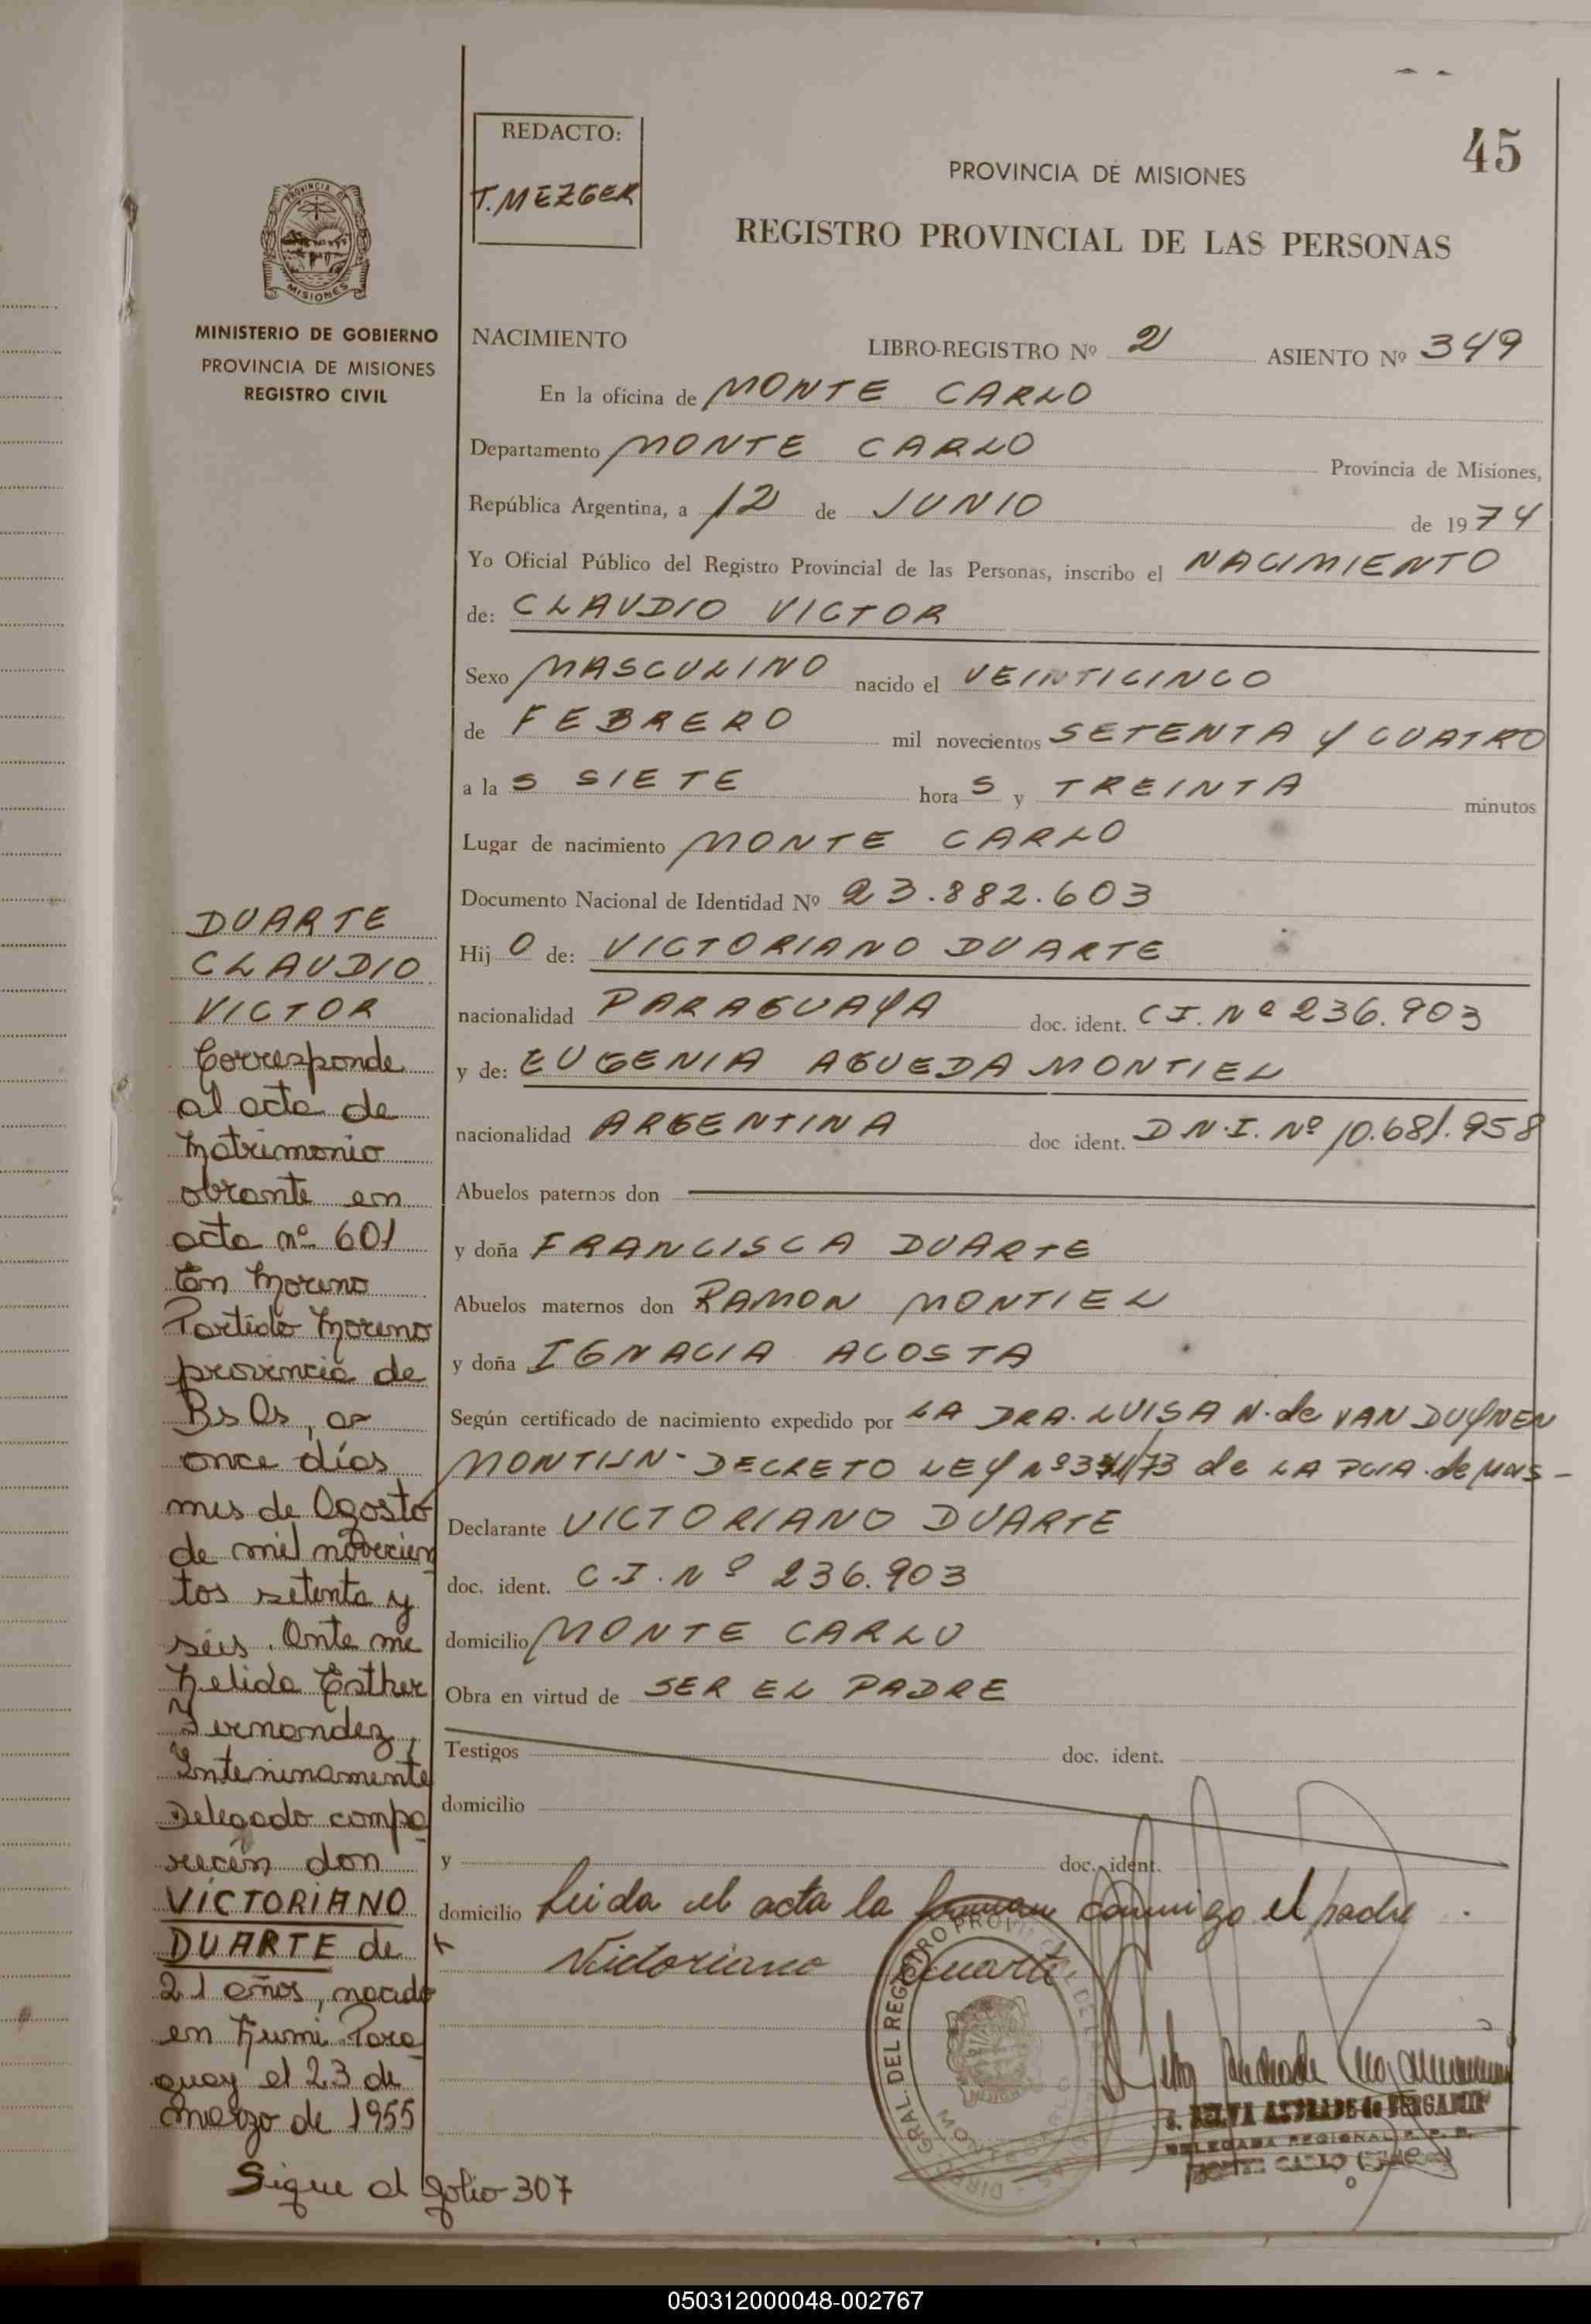 REDACTO:
T. MEZGER
45
PROVINCIA DE MISIONES
REGISTRO PROVINCIAL DE LAS PERSONAS
PROVINCIA DE
MISIONES
MINISTERIO DE GOBIERNO
PROVINCIA DE MISIONES
REGISTRO CIVIL
NACIMIENTO LIBRO-REGISTRO Nº 2 ASIENTO Nº 349
En la oficina de MONTE CARLO
Departamento MONTE CARLO Provincia de Misiones,
República Argentina, a 12 de JUNIO de 1974
Yo Oficial Público del Registro Provincial de las Personas, inscribo el NACIMIENTO
de: CLAUDIO VICTOR
Sexo MASCULINO nacido el VEINTICINCO
de FEBRERO mil novecientos SETENTA Y CUATRO
a la S SIETE hora S y TREINTA minutos
Lugar de nacimiento MONTE CARLO
Documento Nacional de Identidad Nº 23.882.603
Hij O de: VICTORIANO DUARTE
nacionalidad PARAGUAYA doc. ident. C.I. Nº 236.903
y de: EUGENIA AGUEDA MONTIEL
nacionalidad ARGENTINA doc ident. D.N.I. Nº 10.681.958
Abuelos paternos don
y doña FRANCISCA DUARTE
Abuelos maternos don RAMON MONTIEL
y doña IGNACIA ACOSTA
Según certificado de nacimiento expedido por LA DRA. LUISA N. de VAN DUYNEN
MONTIJN - DECRETO LEY Nº /73 de LA PCIA. de
Declarante VICTORIANO DUARTE
doc. ident. C.I. Nº 236.903
domicilio MONTE CARLO
Obra en virtud de SER EL PADRE
Testigos doc. ident.
domicilio
y doc. ident.
domicilio Leida el acta la conmigo el padre.
Victoriano Duarte
DUARTE
CLAUDIO
VICTOR
Corresponde
al acta de
Matrimonio
obrante en
acta nº 601
En Moreno
Partido Moreno
provincia de
Bs As, a
once días
mes de Agosto
de mil novecien
tos setenta y
séis. Ante me
Nelida Esther
Fernandez,
Interinamente
Delegado compa
recén don
VICTORIANO
DUARTE de
21 años, nacido
en Ñumi Para
guay el 23 de
marzo de 1955
Sigue al folio 307
DELEGADA REGIONAL
050312000048-002767